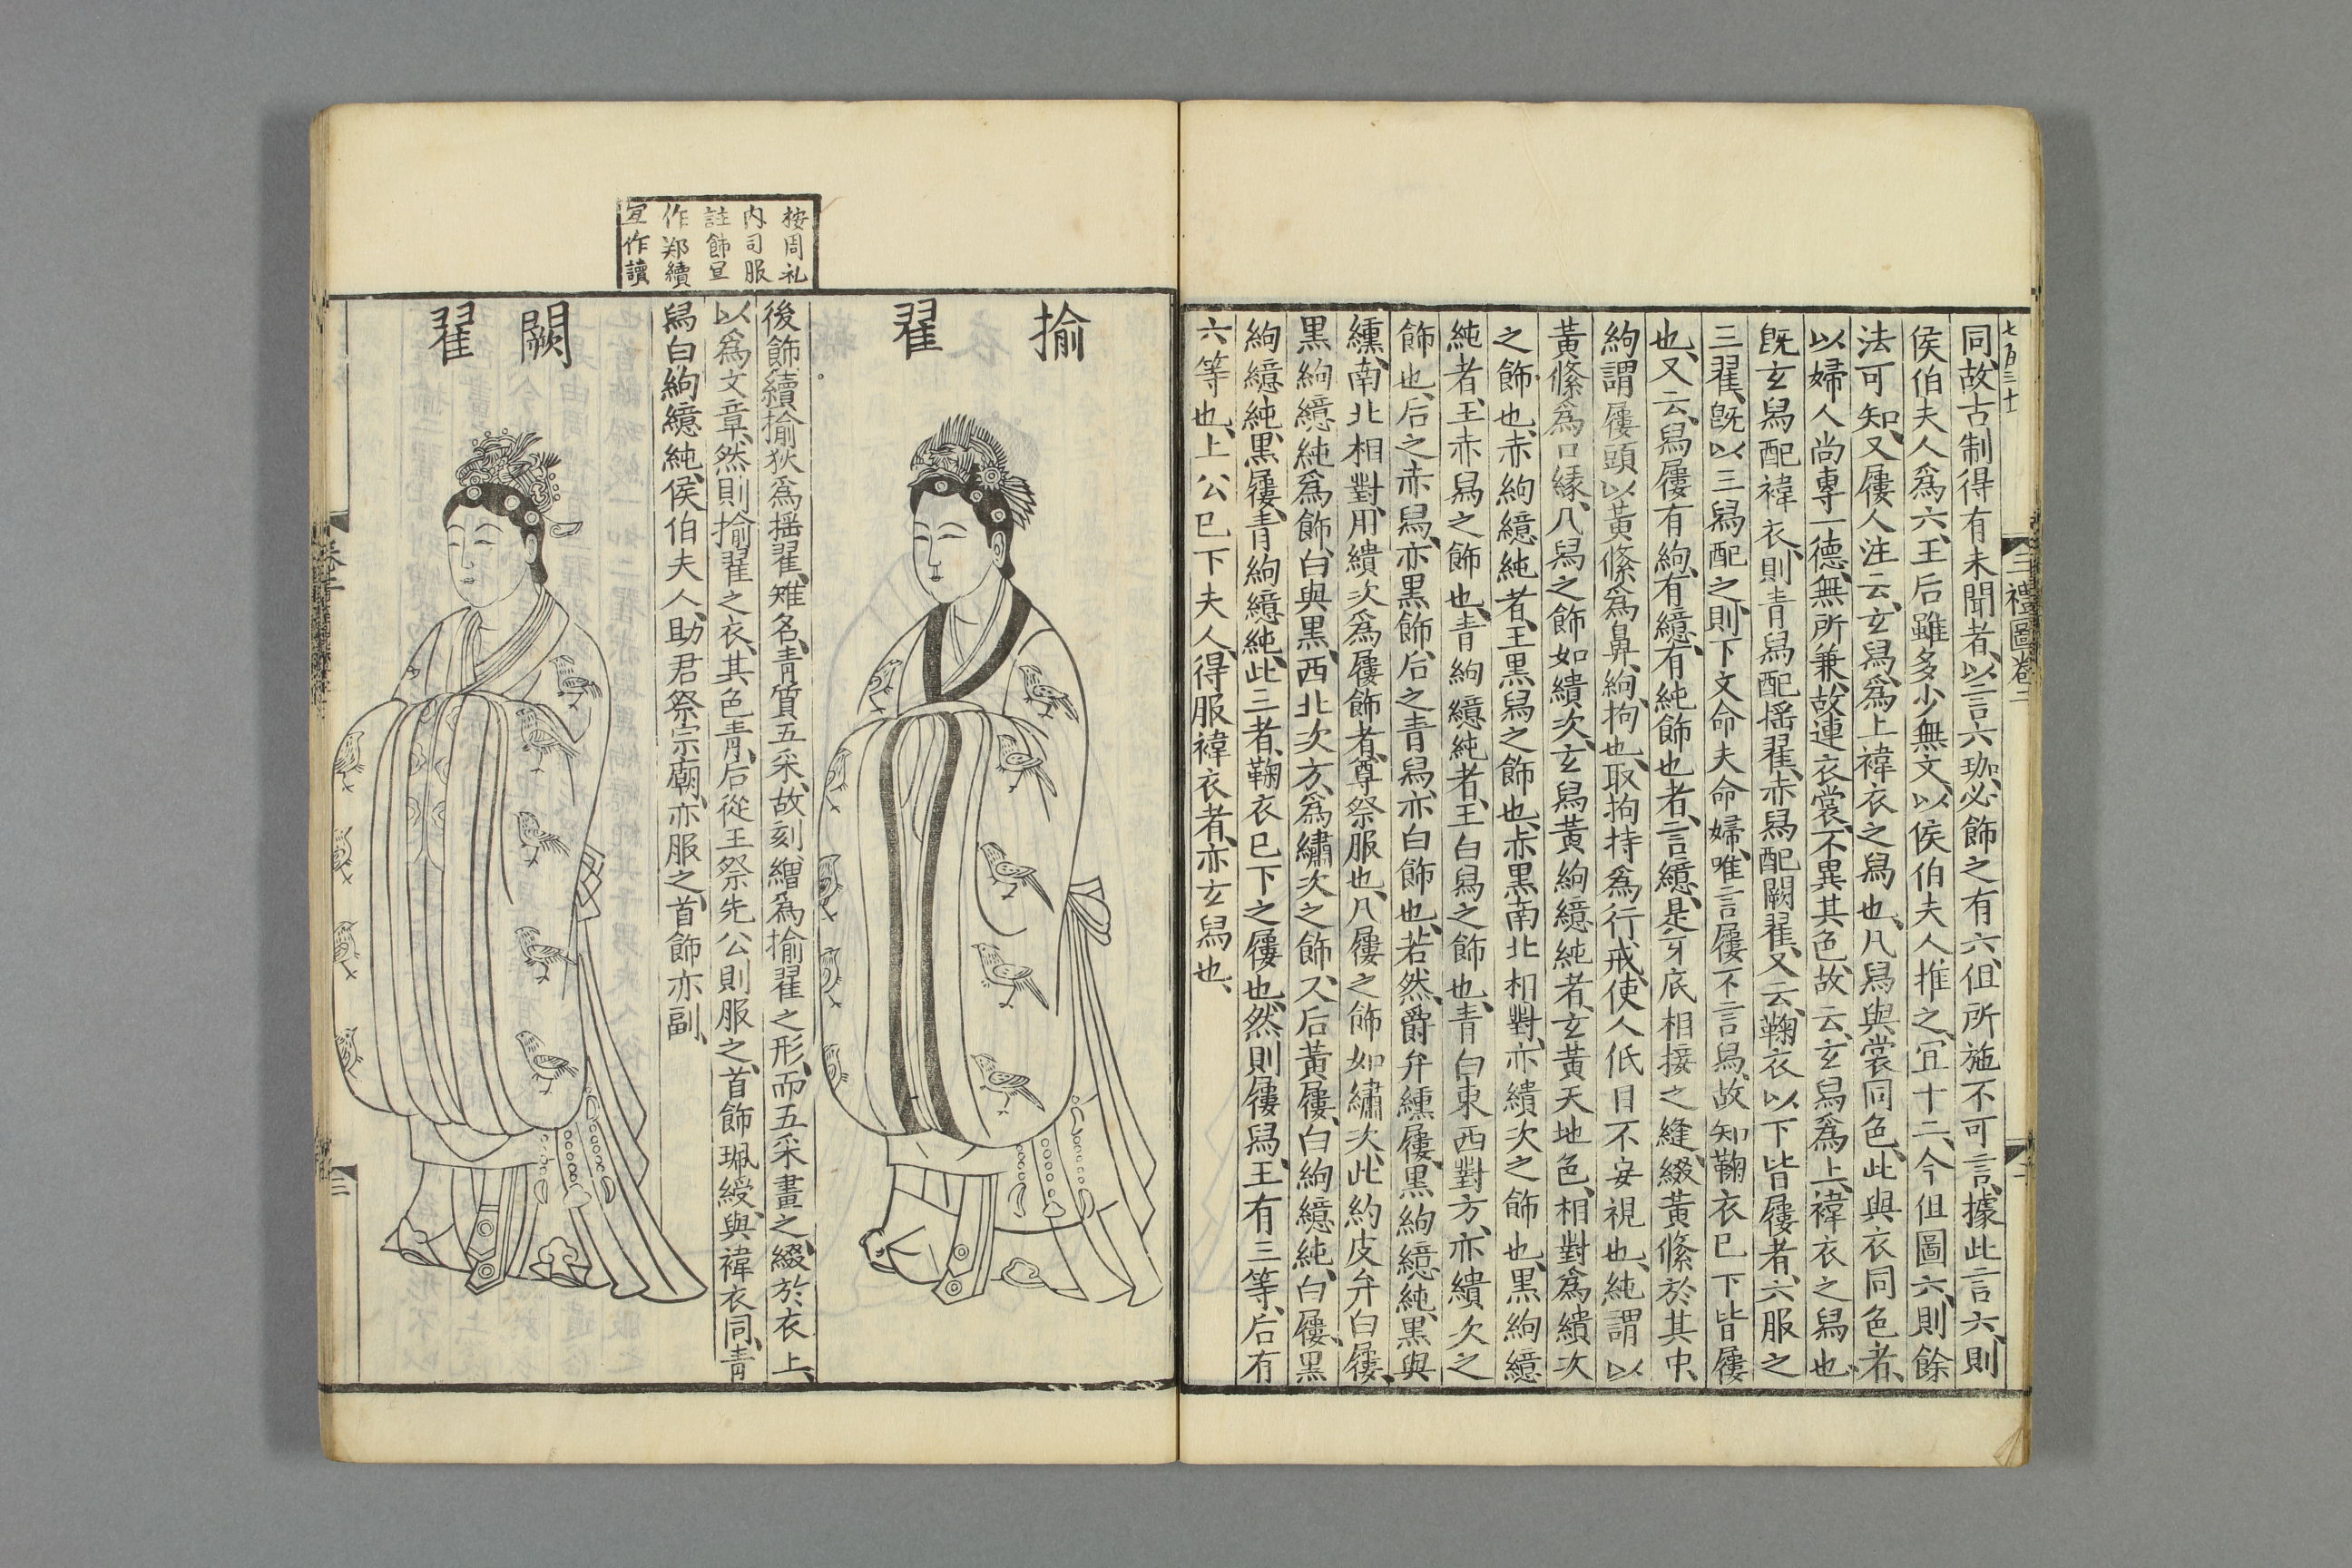 七百三十
三禮圖卷二
二
同、故古制得有未聞者、以言六珈、必飾之有六、但所施不可言、據此言六、則
侯伯夫人爲六、王后雖多少無文、以侯伯夫人推之、宜十二、今但圖六、則餘
法可知、又屨人注云、玄舄爲上、褘衣之舄也、凡舄與裳同色、此與衣同色者、
以婦人尚專一德、無所兼、故連衣裳、不異其色、故云、玄舄爲上、褘衣之舄也、
旣玄舄配褘衣、則青舄配揺翟、赤舄配闕翟、又云、鞠衣以下皆屨者、六服之
三翟、旣以三舄配之、則下文命夫命婦、唯言屨不言舄、故知鞠衣巳下皆屨
也、又云、舄屨有絇、有繶、有純飾也者、言繶、是牙底相接之縫、綴黃絛於其中、
絇謂屨頭以黃絛爲鼻、絇拘也、取拘持爲行戒、使人低目不妄視也、純謂以
黃絛爲口緣、凡舄之飾如繢次、玄舄黃絇繶純者、玄黃天地色、相對爲繢次
之飾也、赤絇繶純者、王黑舄之飾也、赤黑南北相對、亦繢次之飾也、黑絇繶
純者、王赤舄之飾也、青絇繶純者、王白舄之飾也、青白東西對方、亦繢次之
飾也、后之赤舄、亦黑飾、后之青舄、亦白飾也、若然、爵弁纁屨、黑絇繶純、黑與
纁、南北相對、用繢次爲屨飾者、尊祭服也、凡屨之飾如繡次、此約皮弁白屨、
黑絇繶純爲飾、白與黑、西北次方、爲繡次之飾、又后黃屨、白絇繶純、白屨、黑
絇繶純、黑屨、青絇繶純、此三者、鞠衣巳下之屨也、然則屨舄、王有三等、后有
六等也、上公巳下夫人、得服褘衣者、亦玄舄也、
揄翟
按周礼
内司服
註飾宣
作郑續
宣作讀
後飾續揄狄爲揺翟、雉名、青質五采、故刻繒爲揄翟之形、而五采畫之、綴於衣上、
以爲文章、然則揄翟之衣、其色青、后從王祭先公則服之、首飾珮綬、與褘衣同、青
舄白絇繶純、侯伯夫人、助君祭宗廟、亦服之、首飾亦副、
闕翟
卷二
三